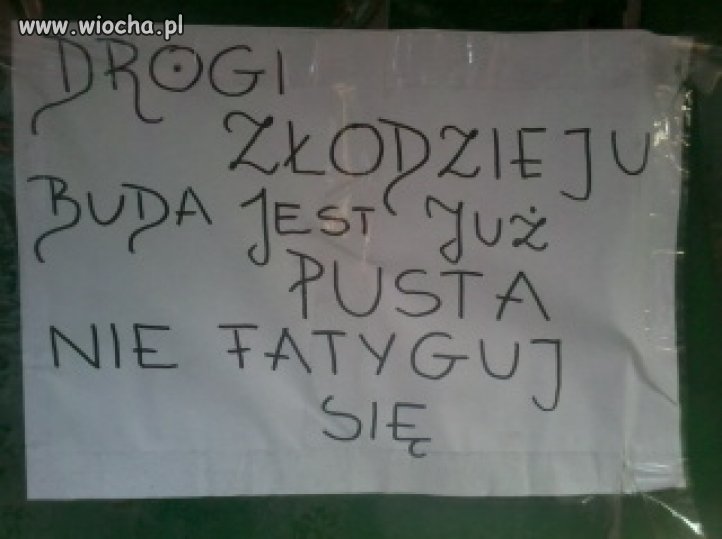 www.wiocha.pl
DROGI
ZŁODZIEJU
BUDA JEST JUŻ
PUSTA
NIE FATYGUJ
SIĘ